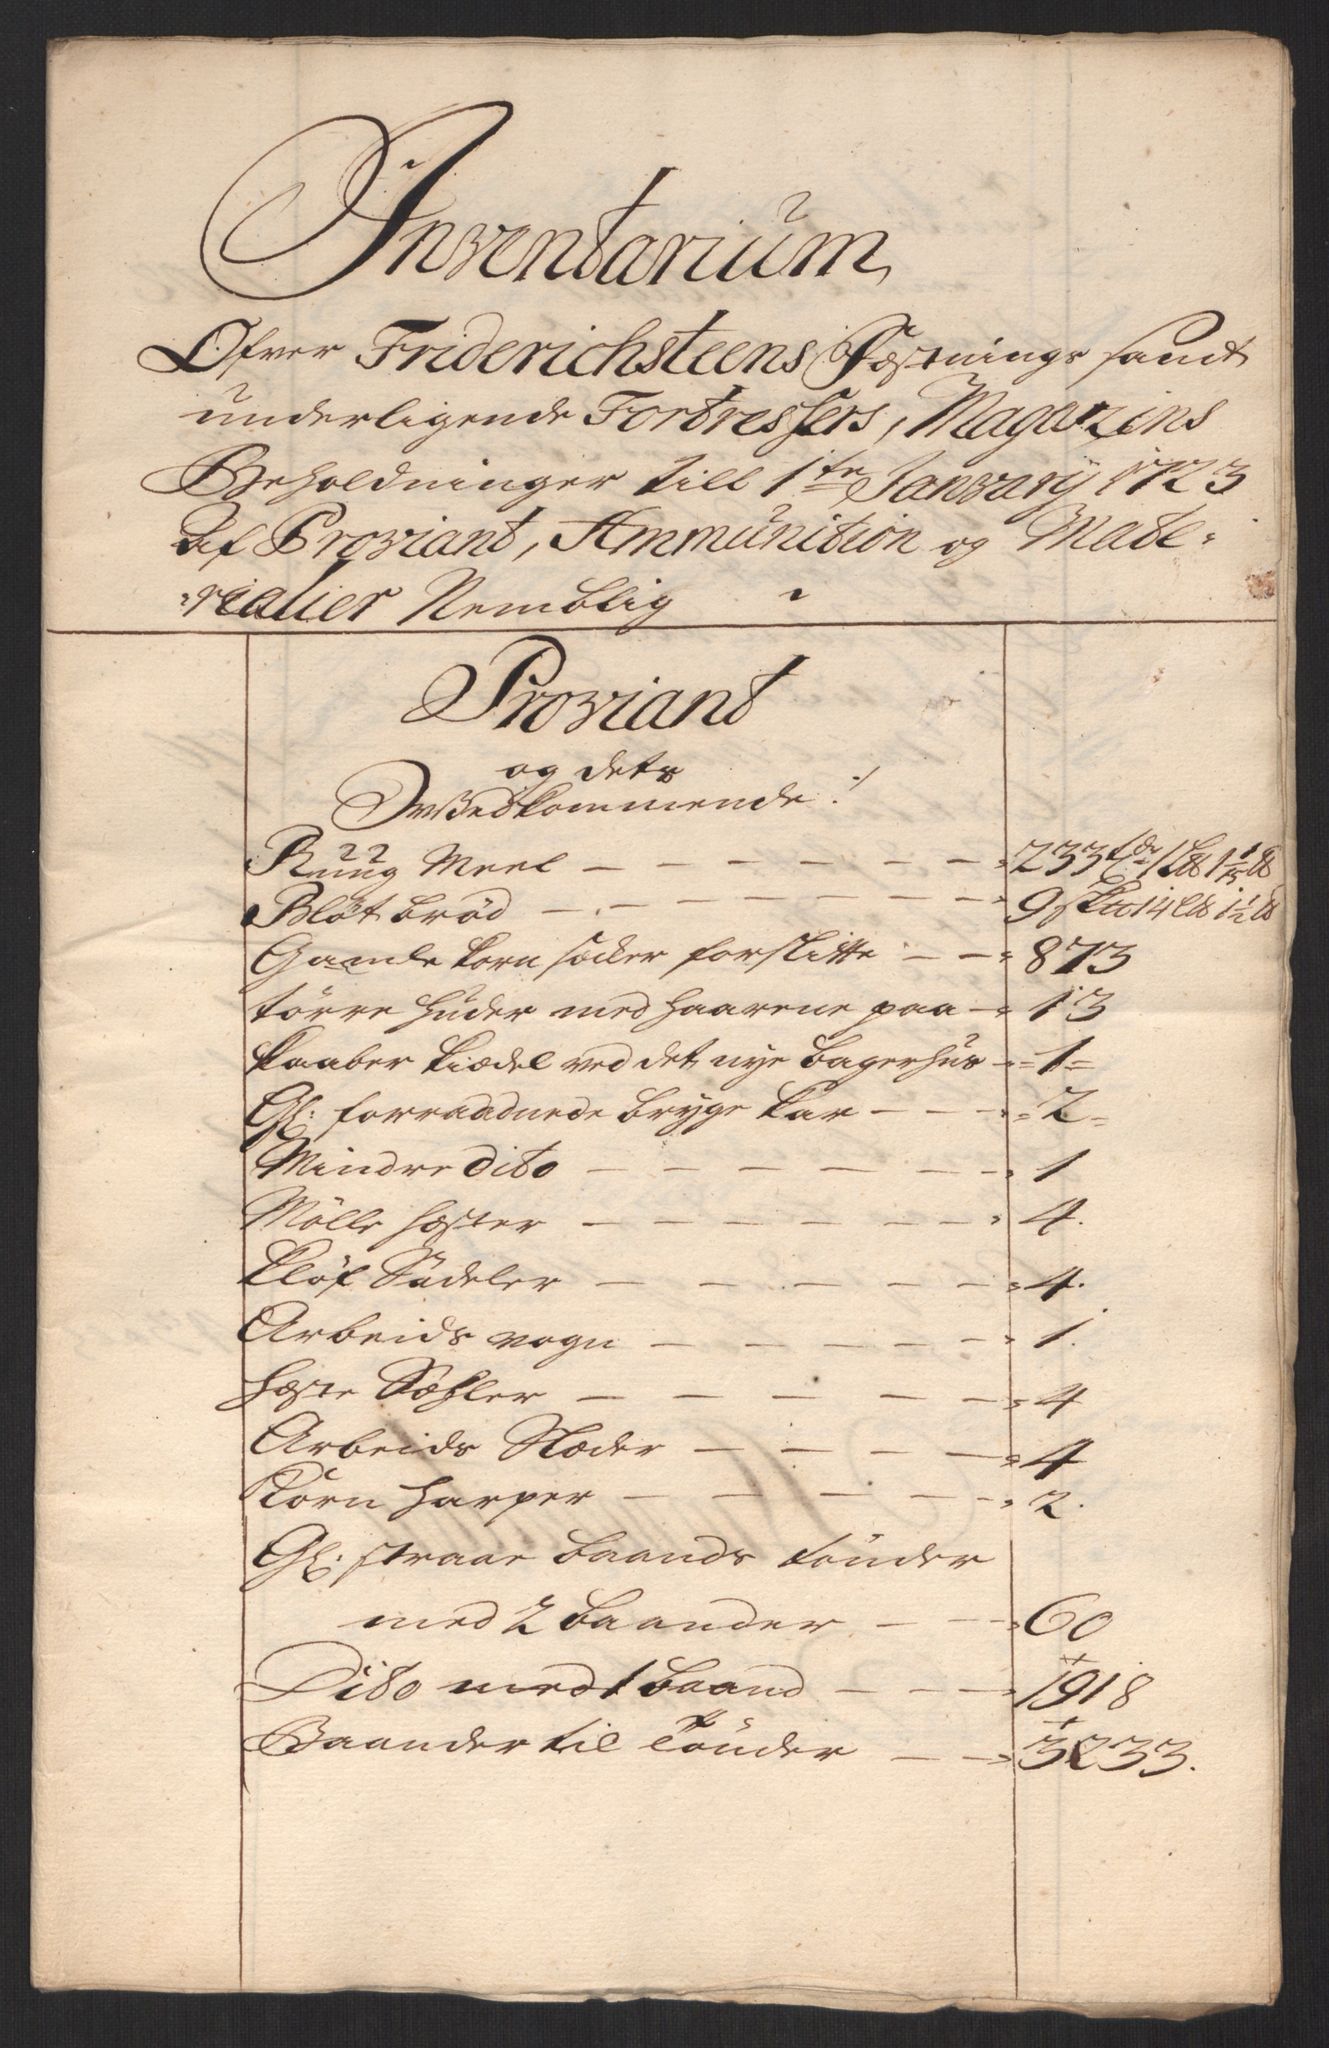 Inventarium
Ofver Friderichsteens Fæstnings samt
underligende Fortressers, Magazins
Beholdninger till 1te Januarij 1723
Af Proviant, Ammunition og Mate-
rialier Nemblig
Proviant
og dets
Vedkommende:/
Ruug Meel — 233 tdr 1 L℔ 1 ℔
Bløt brød — 9 14 L℔ 1½ ℔
Gamle korn sæcker forslitte — 873
tørre huder med haarene paa — 13
kaaber kiædel ved det nye bagerhus — 1
Gl: forraadnede brygekar — 2
Mindre dito — 1
Mölle hæster — 4.
Kløf Sadeler — 4.
Arbeids vogn — 1.
hæste Sæhler — 4
Arbeids Slæder — 4
Korn harper — 2.
Gl: straae baands tønder
med 2 baander — 60
Dito med 1 baand — 1918
Baander til Tønder — 3233.